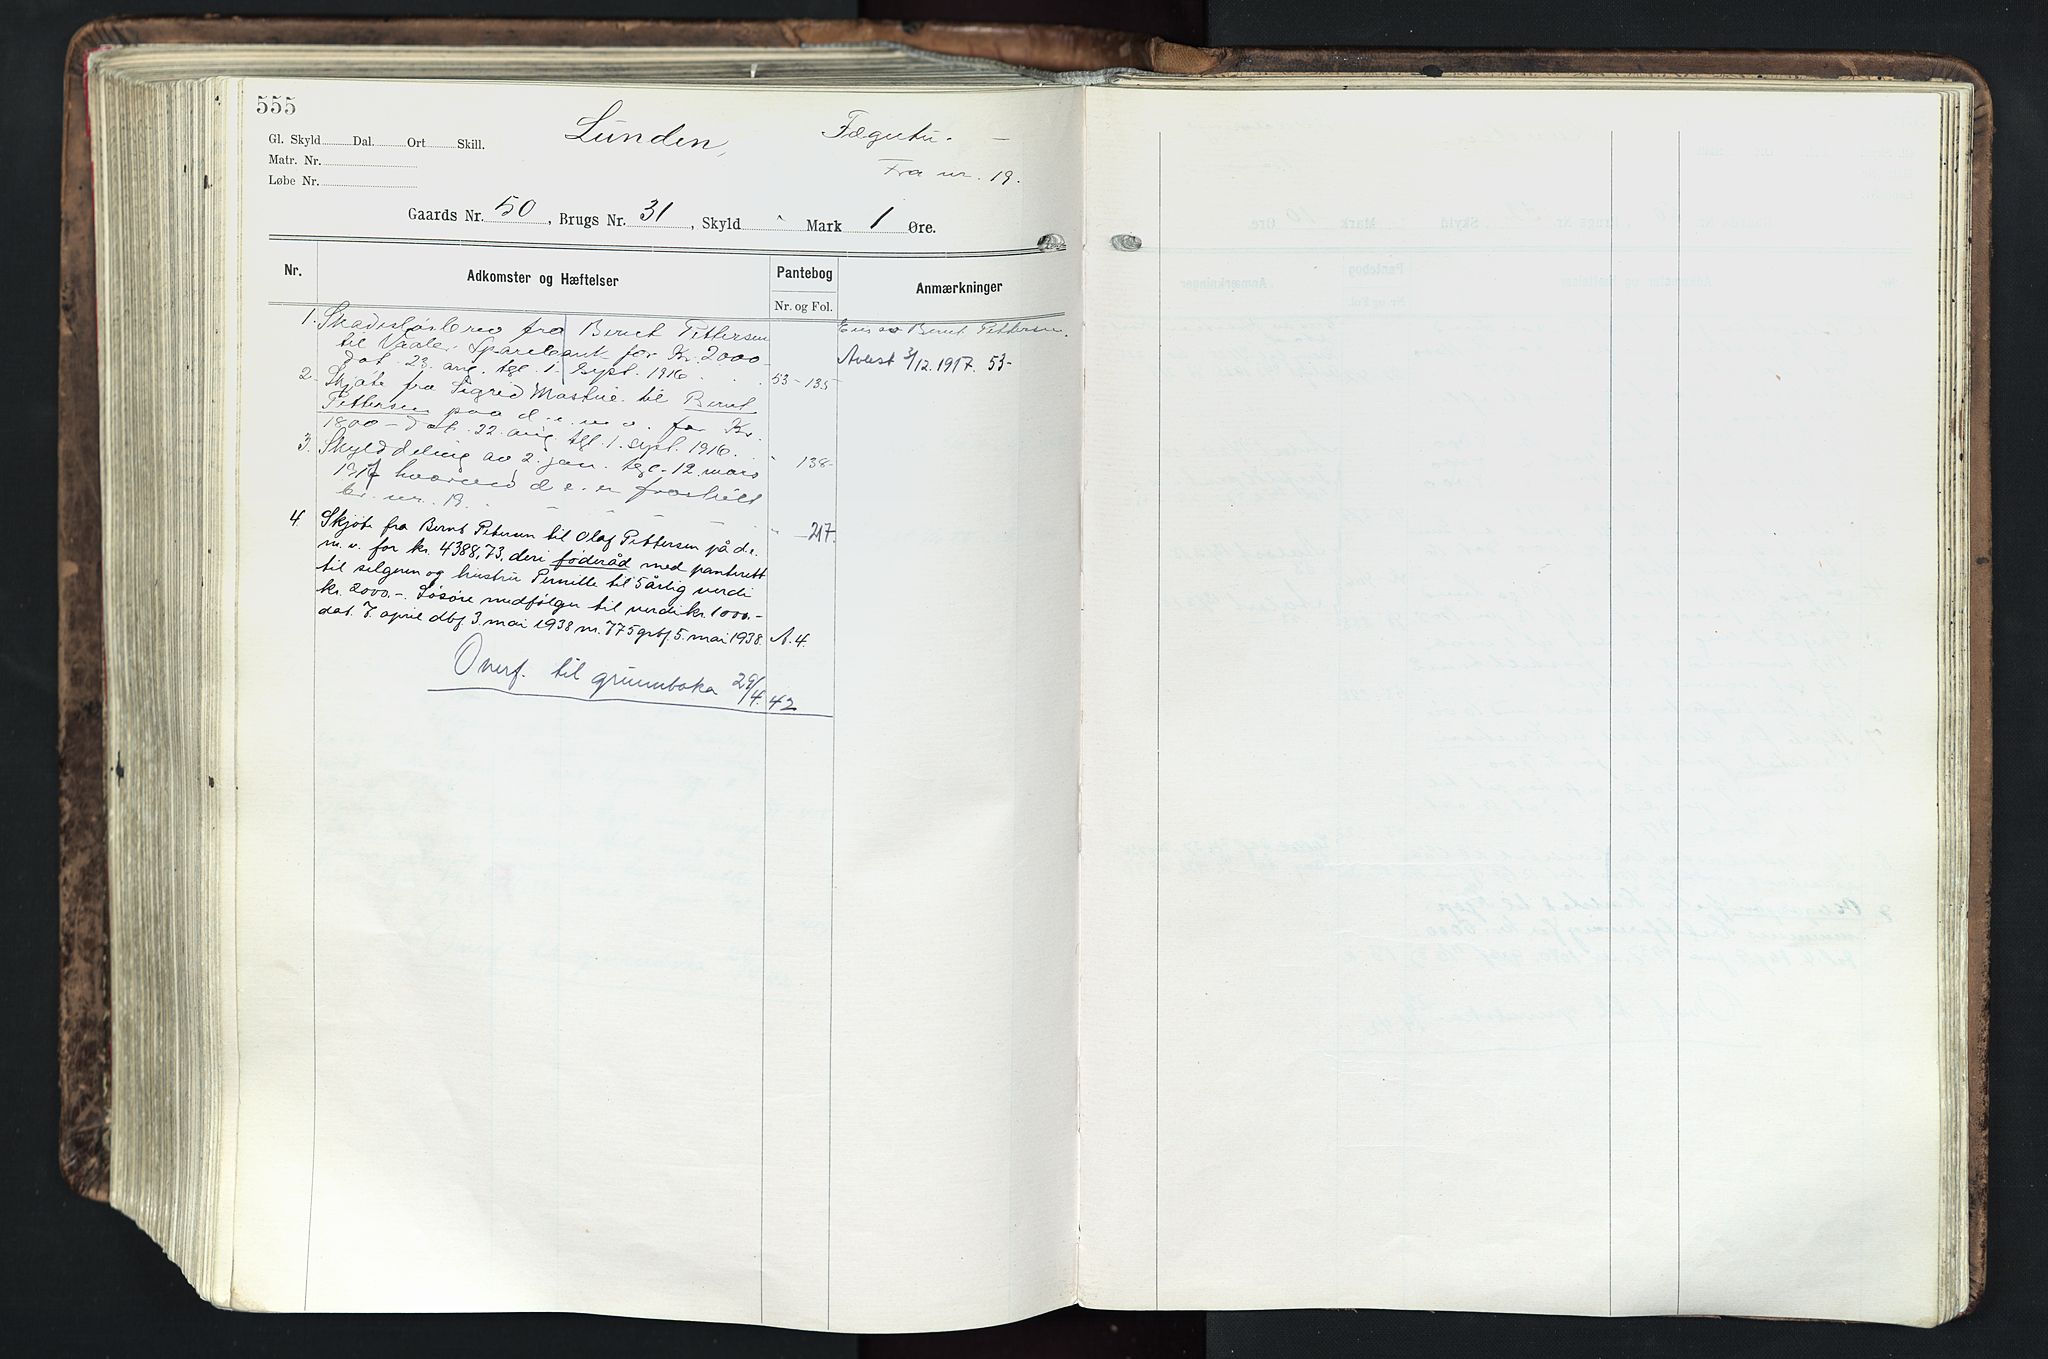 555
Gl. Skyld Dal. Ort Skill.
Matr. Nr.
Løbe Nr.
Lunden,
Fra nr. 19.
Gaards Nr. 50, Brugs Nr. 31, Skyld " Mark 1 Øre.
Nr. Adkomster og Hæftelser Pantebog Anmærkninger
Nr. og Fol.
1. Skadesløsbrev fra Bernt Pettersen
til Vaaler Sparebank for Kr. 2000
dat. 23. aug. tgl. 1. Sept. 1916. 53 - 135
Eies av Bernt Pettersen.
Avlest 3/12. 1917. 53-
2. Skjøte fra Sigrid Mastue til Bernt
Pettersen paa d. e. m. v. for Kr.
1800 - dat. 22. aug. tgl. 1. sept. 1916. " 138-
3. Skylddeling av 2. jan. tgl. 12. mars
1917 hvorved d. e. er fraskilt
br. nr. 19. " - 217.
4. Skjøte fra Bernt Petersen til Olaf Pettersen på d. e.
m. v. for kr. 4388,73, deri føderåd med panterett
til selgeren og hustru Pernille til 5 årlig verdi
kr. 2000.- Løsøre medfølger til verdi kr. 1000.-
dat. 7. april dbf. 3. mai 1938 nr. 775 grbf. 5. mai 1938. A. 4.
Overf. til grunnboka 29/4. 42